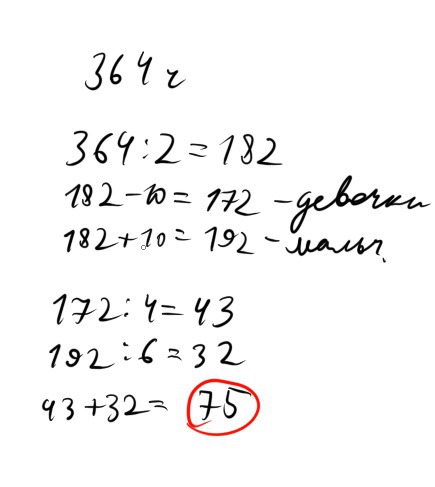 364 ч
364:2=182
182-10=172-девочки
182+10=192-мальч.
172:4=43
192:6=32
43+32=75